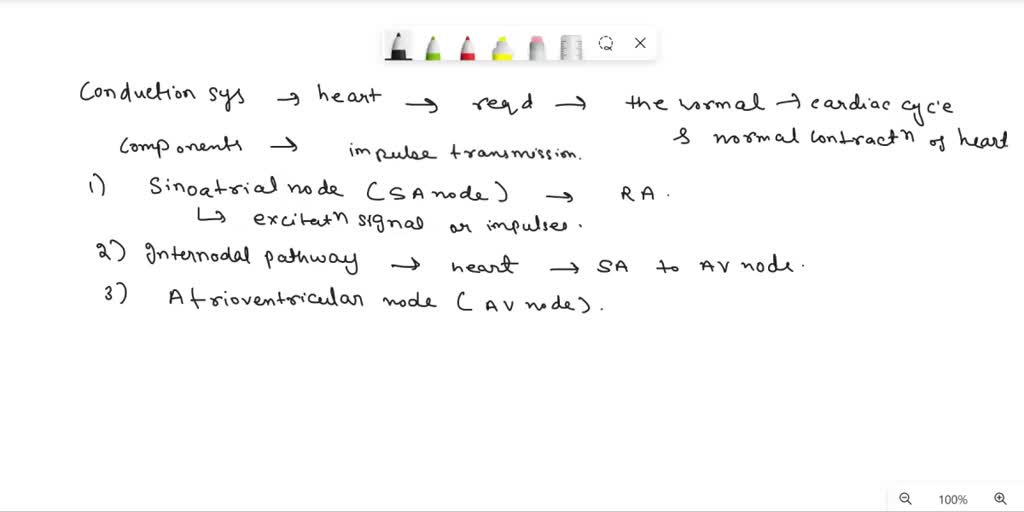 Conduction sys → heart → reqd → the normal → cardiac cycle
& normal contractn of heart
Components → impulse transmission.
1) Sinoatrial node (SA node) → RA.
↳ excitatn signal or impulses.
2) Internodal pathway → heart → SA to AV node.
3) Atrioventricular node (AV node).
100%